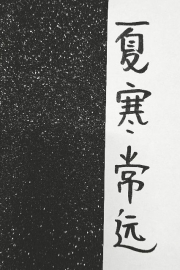 夏寒常远